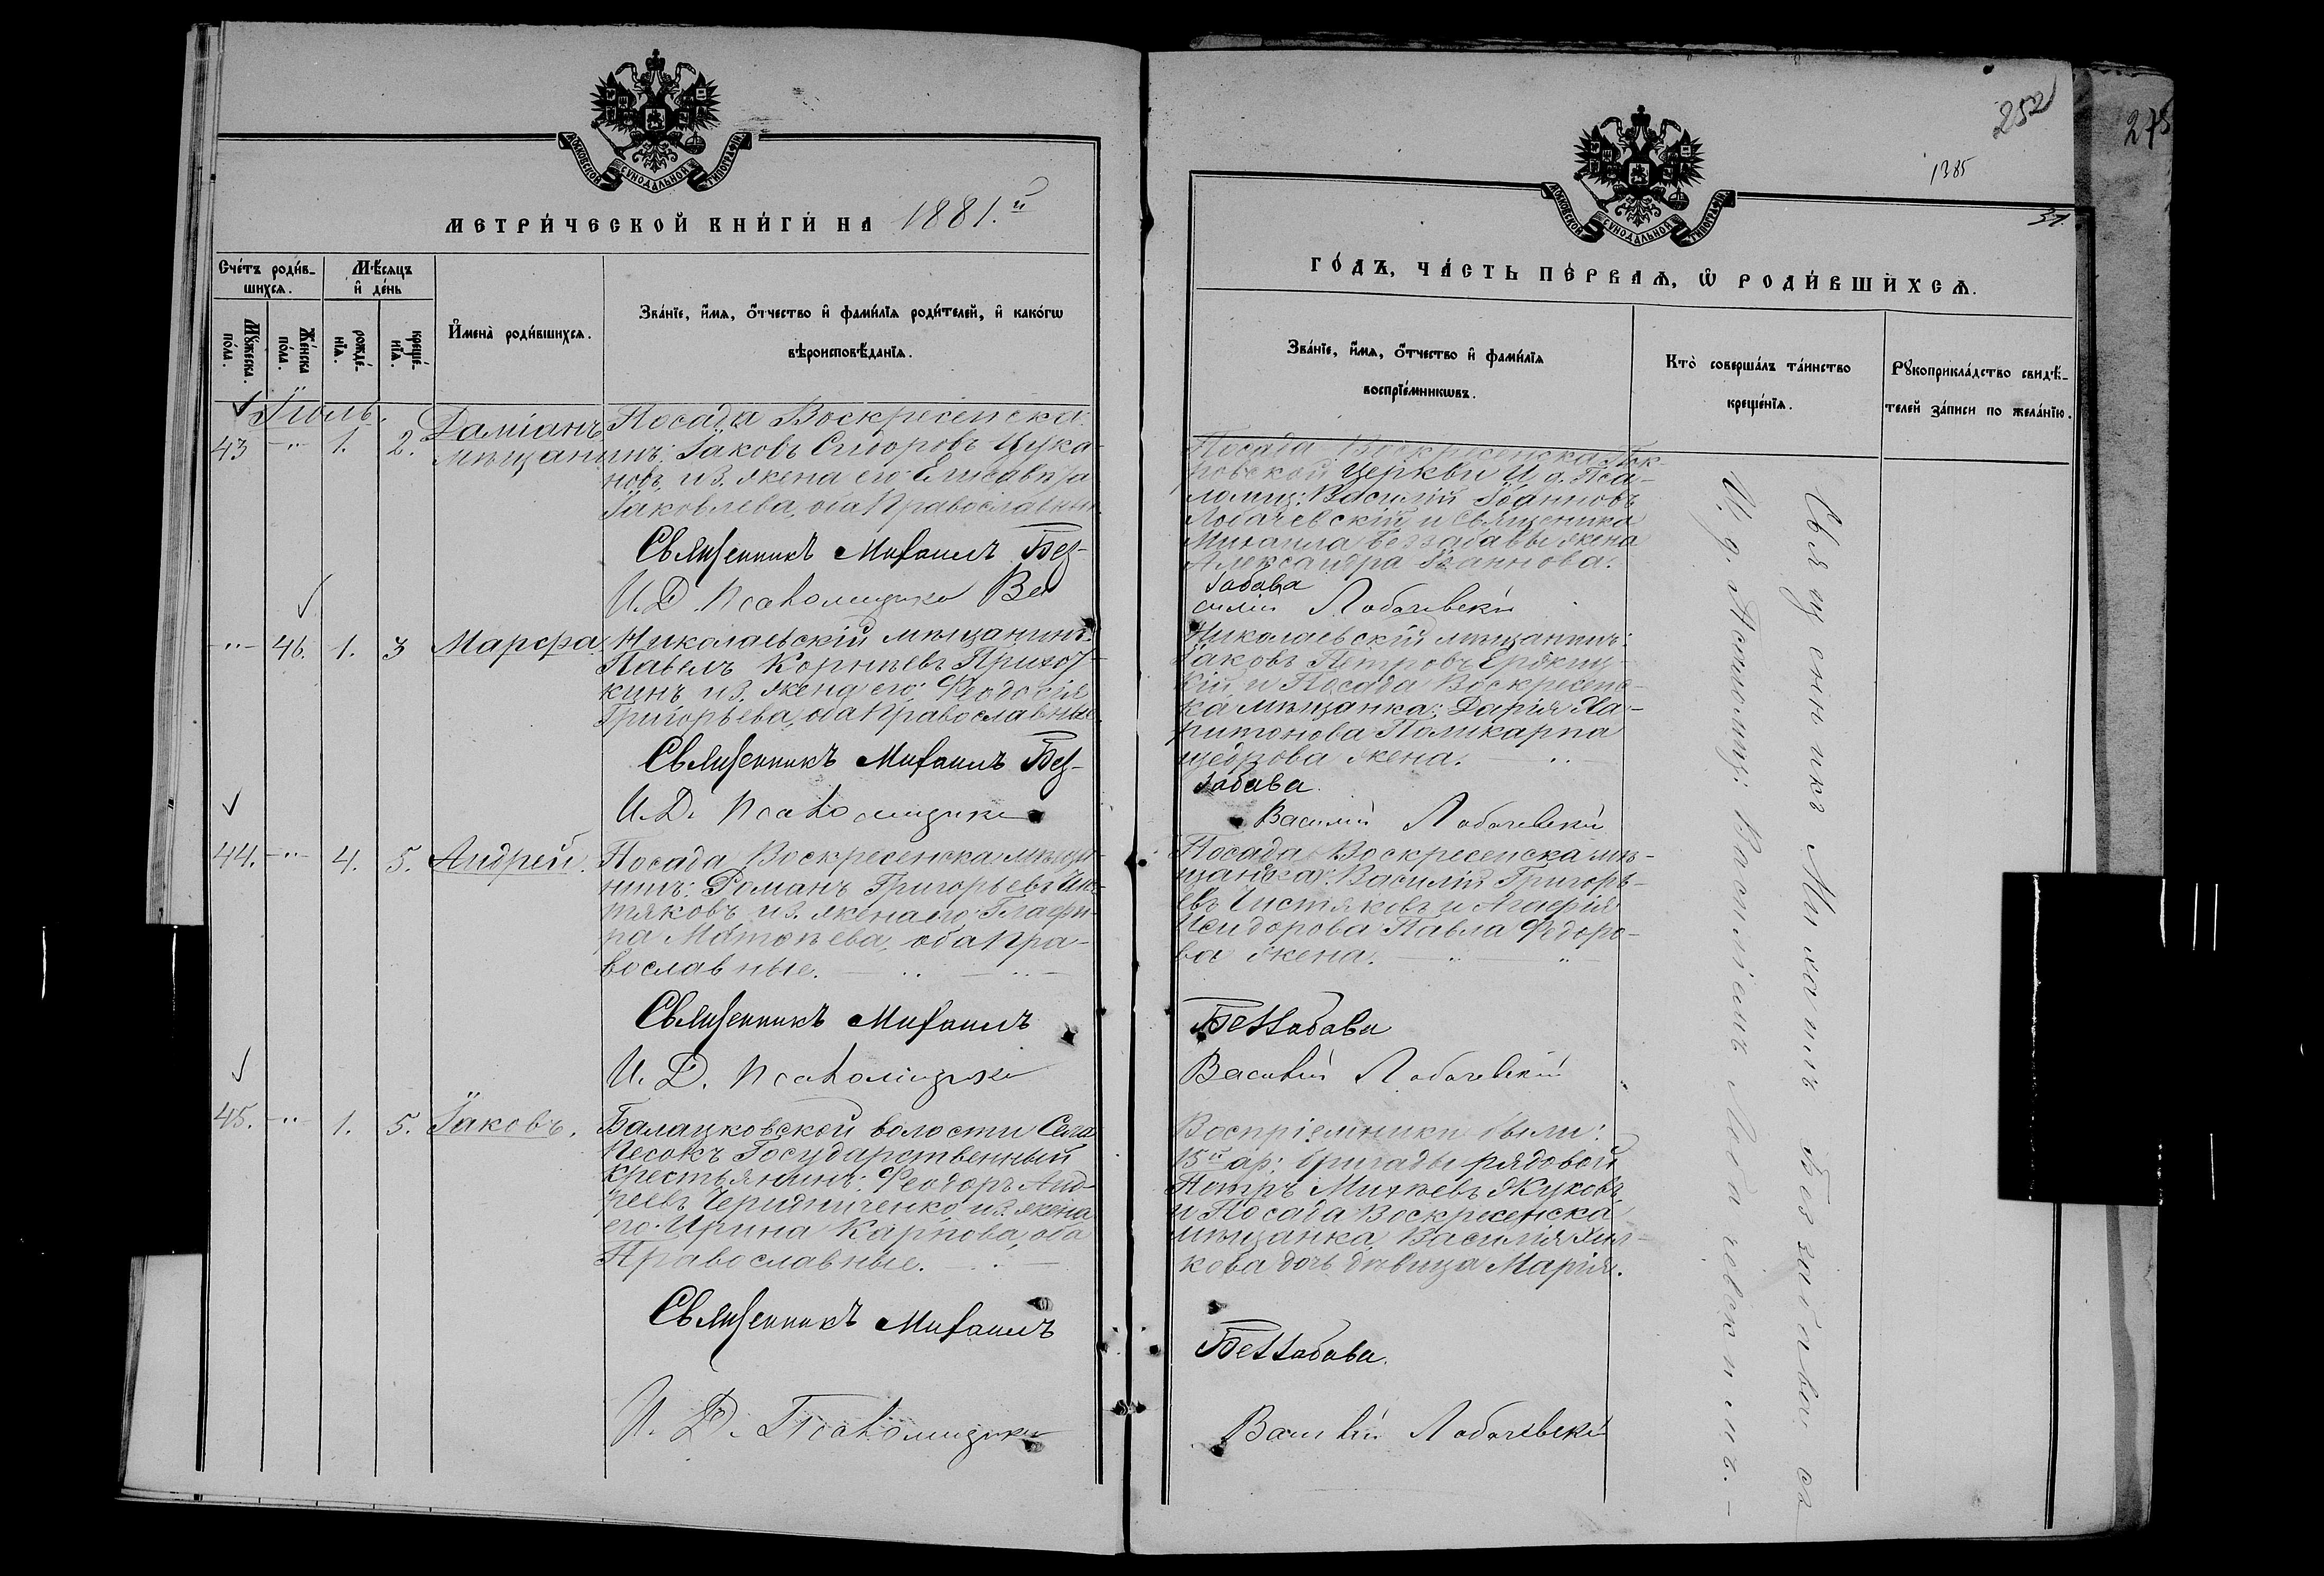 МОСКОВСКОЙ СѴНОДАЛЬНОЙ ТИПОГРАФІИ
МЕТРИ́ЧЕСКОЙ КНИ́ГИ НА 1881.й
Сче́тъ роди́в-
шихсѧ.
Мѣ́сѧцъ
и҆ де́нь
Мꙋ́жеска по́ла.
Же́нска по́ла.
рожде́-
нїѧ.
креще́-
нїѧ.
И҆мена̀ роди́вшихсѧ.
Зва́нїе, и҆́мѧ, ѻ҆́тчество и҆ фами́лїѧ роди́телей, и҆ како́гѡ
вѣроисповѣ́данїѧ.
Іюль.
43 -"- 1. 2. Даміанъ
Посада Воскресенска
мѣщанинъ: Іаковъ Сидоровъ Цука-
новъ, из. жена его Елисавета
Іаковлева, оба Православные.
Священникъ Михаилъ Без-
И. Д. Псаломщика Ва
-"- 46. 1. 3 Марѳа
Николаевскій мѣщанинъ:
Павелъ Корнѣевъ Приход-
кинъ, из. жена его: Ѳеодосія
Григорьева, оба Православные.
Священникъ Михаилъ Без-
И. Д. Псаломщика
44. -"- 4. 5. Андрей.
Посада Воскресенска мѣща-
нинъ: Романъ Григорьевъ Чис-
тяковъ из. жена его: Глафи-
ра Матѳѣева, оба Пра-
вославные.
Священникъ Михаилъ
И. Д. Псаломщика
45. -"- 1. 5. Іаковъ.
Балацковской волости Села
Песокъ Государственный
крестьянинъ: Ѳеодоръ Анд-
реевъ Чередниченко из. жена
его: Ирина Карпова, оба
Православные.
Священникъ Михаилъ
И. Д. Псаломщика
252
275
1385
31.
МОСКОВСКОЙ СѴНОДАЛЬНОЙ ТИПОГРАФІИ
ГО́ДЪ, ЧА́СТЬ ПЕ́РВАѦ, Ѡ҆ РОДИ́ВШИХСѦ.
Зва́нїе, и҆́мѧ, ѻ҆́тчество и҆ фами́лїѧ
воспрїе́мникѡвъ.
Кто̀ соверша́лъ та́инство
креще́нїѧ.
Рꙋкоприкла́дство свидѣ́-
телей за́писи по жела́нїю.
Посада Воскресенска Пок-
ровской Церкви И. д. Пса-
ломщ: Василій Іоанновъ
Лобачевскій и Священика
Михаила Беззабавы жена
Александра Іоаннова.
забава
силій Лобачевскій
Николаевскій мѣщанинъ:
Іаковъ Петровъ
кій, и Посада Воскресенс-
ка мѣщанка: Дарія Ха-
ритонова Поликарпа
жена.
забава.
Василій Лобачевскій
Посада Воскресенска мѣ-
щанска: Василій Григорь-
евъ Чистяковъ и Агаѳія
Исидорова Павла Ѳедоро-
ва жена.
Беззабава
Василій Лобачевскій
Воспріемники были:
15й ар: бригады рядовой
Петръ Михѣевъ Жуковъ
и Посада Воскресенска
мѣщанка Василія
кова дочь дѣвица Марія.
Беззабава.
Василій Лобачевскій
Священникъ Михаилъ Беззабава съ
И. д. Псаломщ: Василіемъ Лобачевскимъ.